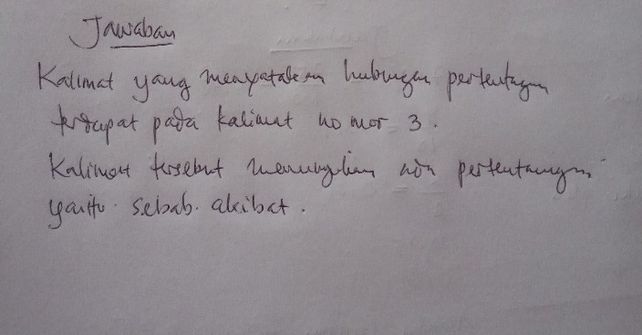 Jawaban
Kalimat yang menyatakan hubungan pertentangan
terdapat pada kalimat nomor 3.
Kalimat tersebut ada pertentangan
yaitu sebab akibat.